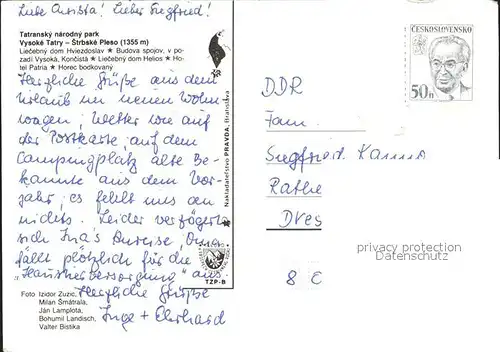 Liebe Christa! Lieber Siegfried!
Tatranský národný park
Vysoké Tatry – Štrbské Pleso (1355 m)
Liečebný dom Hviezdoslav ★ Budova spojov, v po-
zadí Vysoká, Končistá ★ Liečebný dom Helios ★ Ho-
tel Patria ★ Horec bodkovaný
Herzliche Grüße aus dem
Urlaub im neuen Wohn-
wagen; Wetter wie auf
der Postkarte; auf dem
Campingplatz alte Be-
kannte aus dem Vor-
jahr; es fehlt uns an
nichts. Leider verzögert
sich Ina's Anreise, Oma
fällt plötzlich für die
"Haustierversorgung" aus.
Herzliche Grüße
Inge + Eberhard
Foto Izidor Zuzic,
Milan Šmátrala,
Ján Lamplota,
Bohumil Landisch,
Valter Bistika
Nakladateľstvo PRAVDA, Bratislava
TZP-B
ČESKOSLOVENSKO
50 h
DDR
Fam.
Siegfried
Dres
8
privacy protection